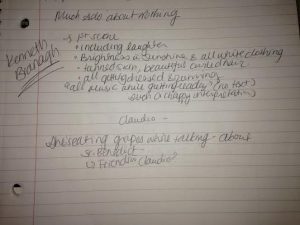 Much ado about nothing
Kenneth Branagh
1st scene
• including laughter
• Brightness & Sunshine & all white clothing
• tanned skin, beautiful curled hair
• all getting dressed
all music while getting ready (no text)
such a happy interpretation
Claudio -
She's eating grapes while talking - about
Sr. Benedict -
↳ Friend is Claudio?